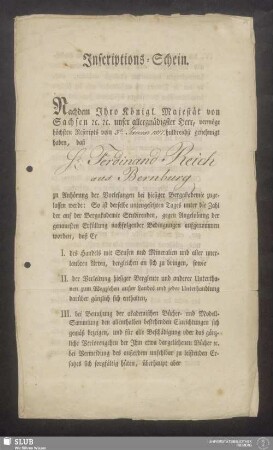 Inscriptions-Schein.
Nachdem Ihro Königl. Majestät von
Sachsen ꝛc. ꝛc. unser allergnädigster Herr, vermöge
höchsten Rescripts vom huldreichst genehmigt
haben, daß
Hr. Ferdinand Reich
aus Bernburg
zu Anhörung der Vorlesungen bei hiesiger Bergacademie zuge-
lassen werde: So ist derselbe untengesetzten Tages unter die Zahl
der auf der Bergakademie Studirenden, gegen Angelobung der
genauesten Erfüllung nachfolgender Bedingungen aufgenommen
worden, daß Er
I. des Handels mit Stufen und Mineralien und aller uner-
laubten Arten, dergleichen an sich zu bringen, sowie
II. der Verleitung hiesiger Bergleute und anderer Untertha-
nen zum Wegziehen außer Landes und jeder Unterhandlung
darüber gänzlich sich enthalten,
III. bei Benutzung der akademischen Bücher- und Modell-
Sammlung den allenthalben bestehenden Einrichtungen sich
gemäß bezeigen, und für alle Beschädigung oder das gänz-
liche Verlorengehen der Ihm etwa dargeliehenen Bücher ꝛc.
bei Vermeidung des außerdem unfehlbar zu leistenden Er-
satzes sich sorgfältig hüten, überhaupt aber
SLUB
Wir führen Wissen.